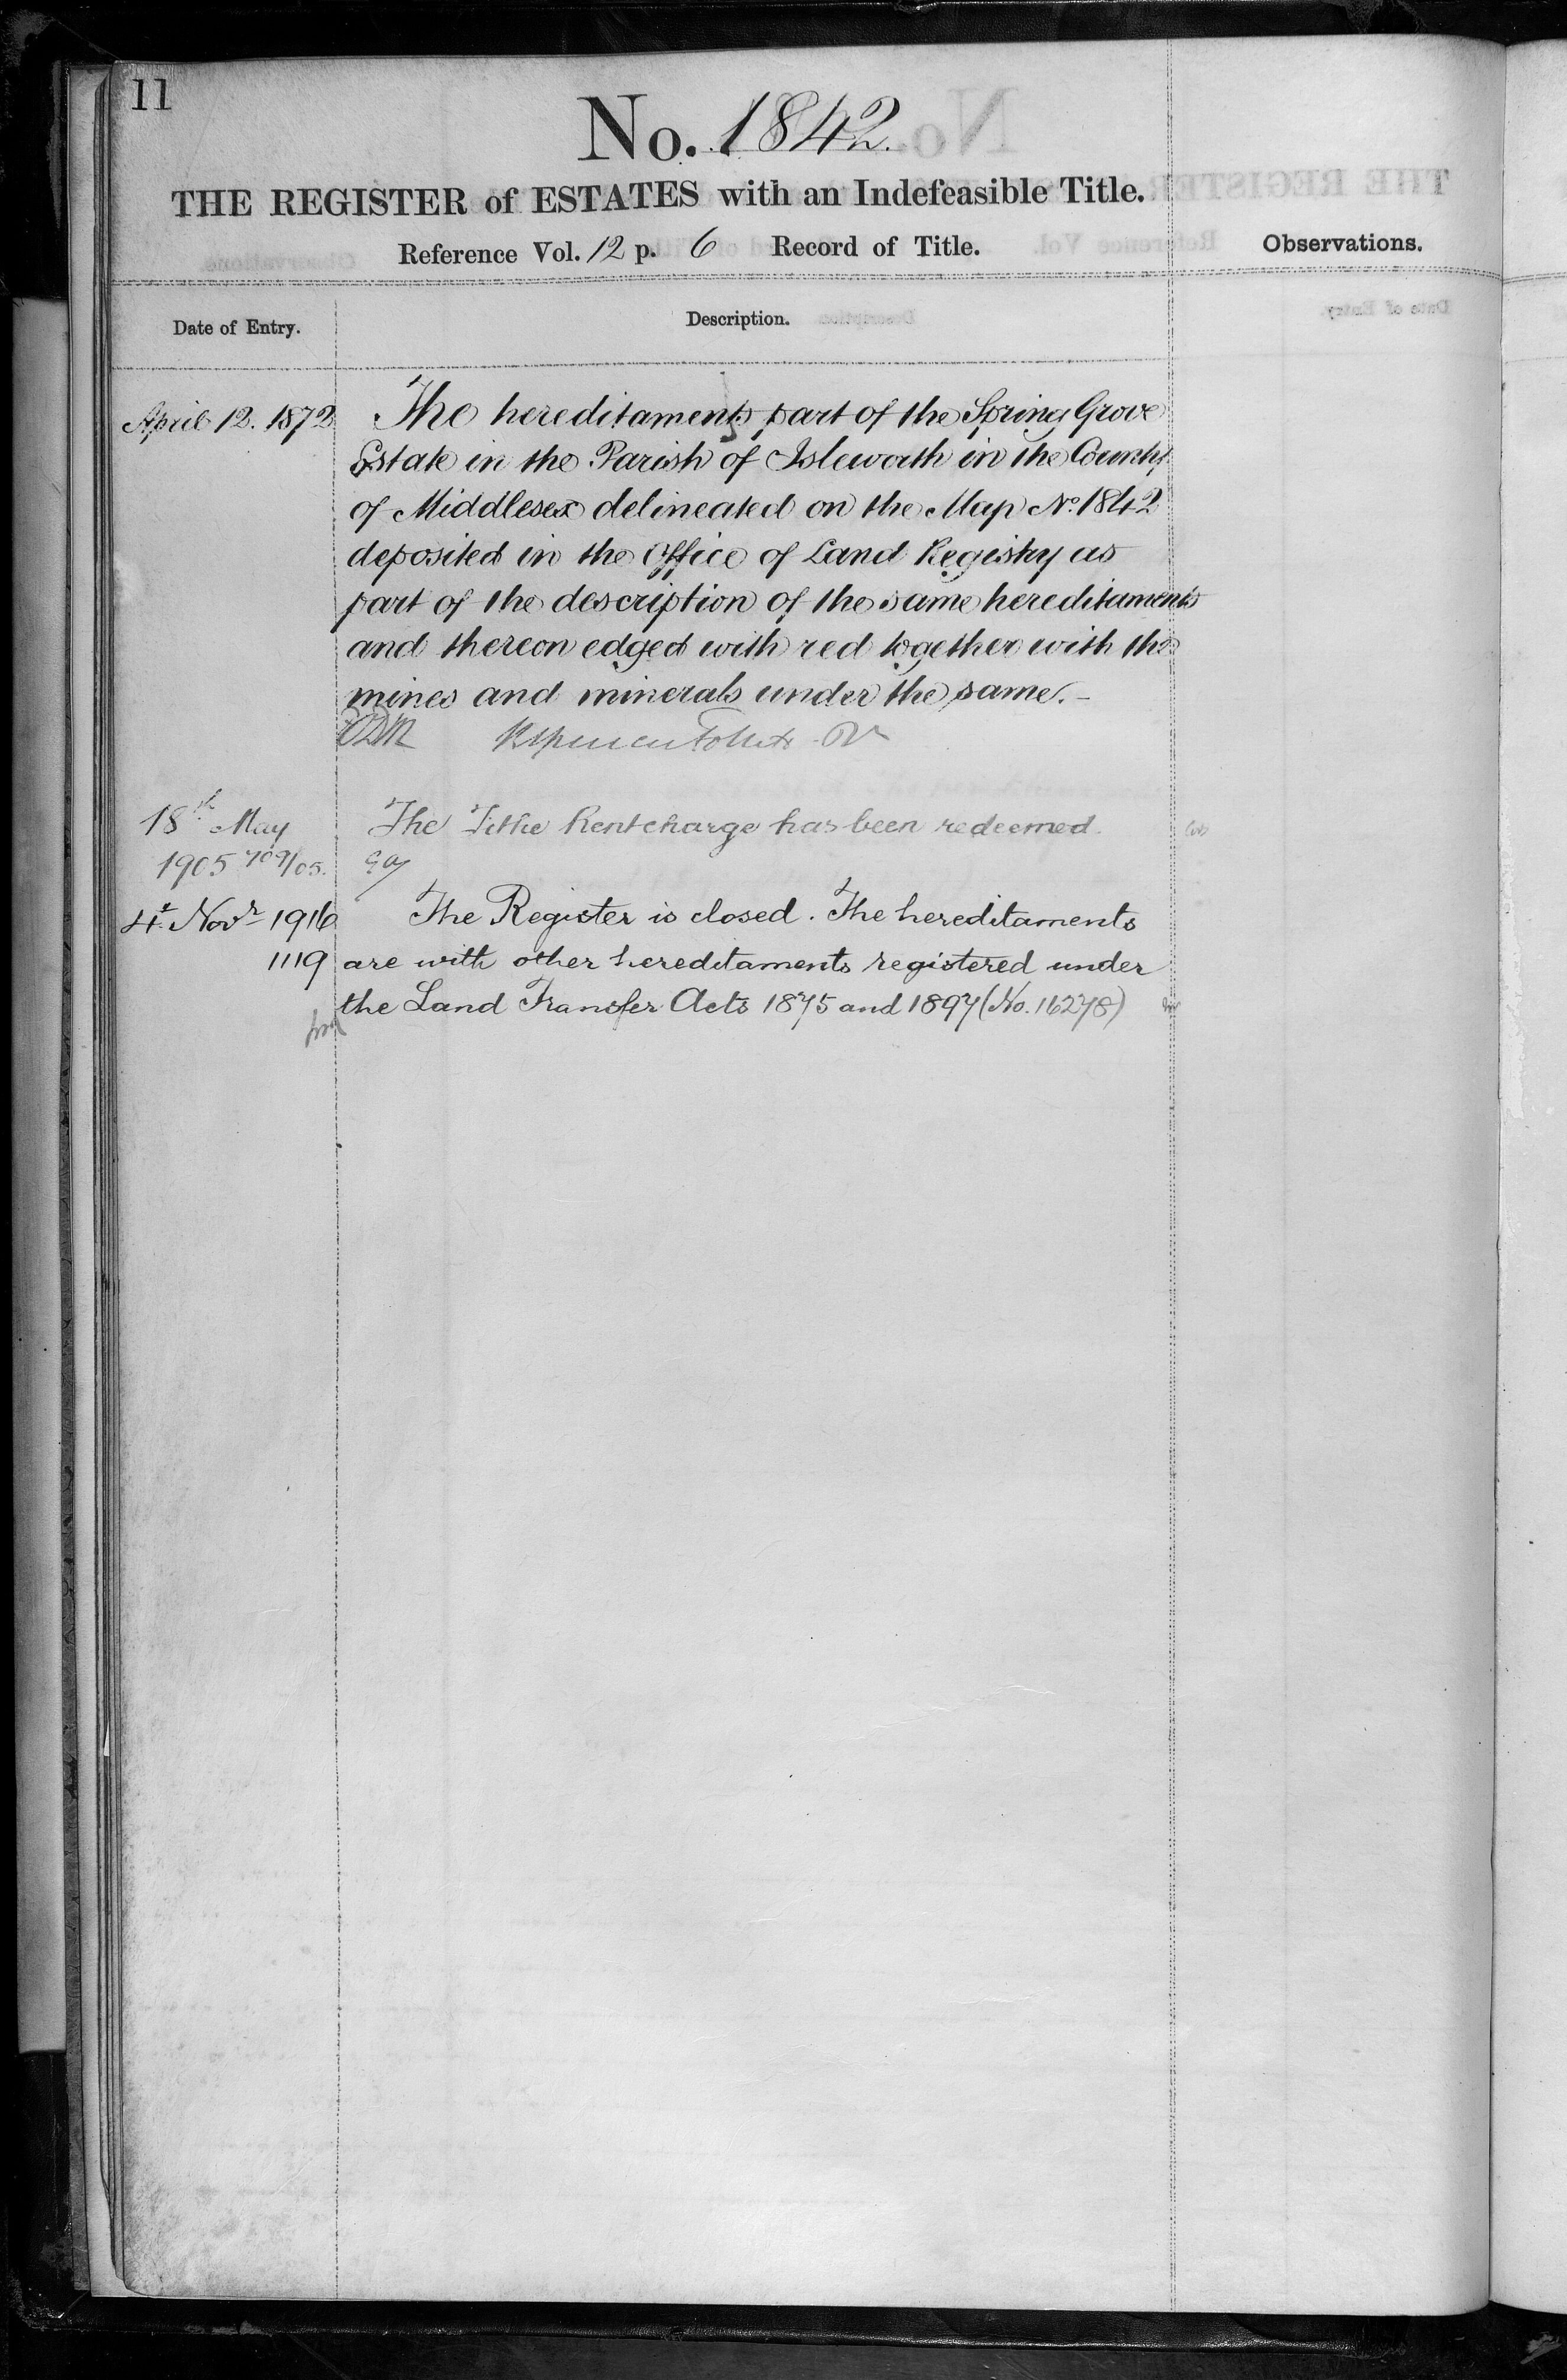 11
No. 1842.
THE REGISTER of ESTATES with an Indefeasible Title.
Reference Vol. 12 p. 6 Record of Title.
Observations.
Date of Entry.
Description.
April 12. 1872 The hereditaments part of the Spring Grove
Estate in the Parish of Isleworth in the County
of Middlesex delineated on the Map No. 1842
deposited in the Office of Land Registry as
part of the description of the same hereditaments
and thereon edged with red together with the
mines and minerals under the same.-
18th May The Tithe Rentcharge has been redeemed.
1905 709/05.
4th Novr 1916 The Register is closed. The hereditaments
1119 are with other hereditaments registered under
the Land Transfer Acts 1875 and 1897 (No. 16278)